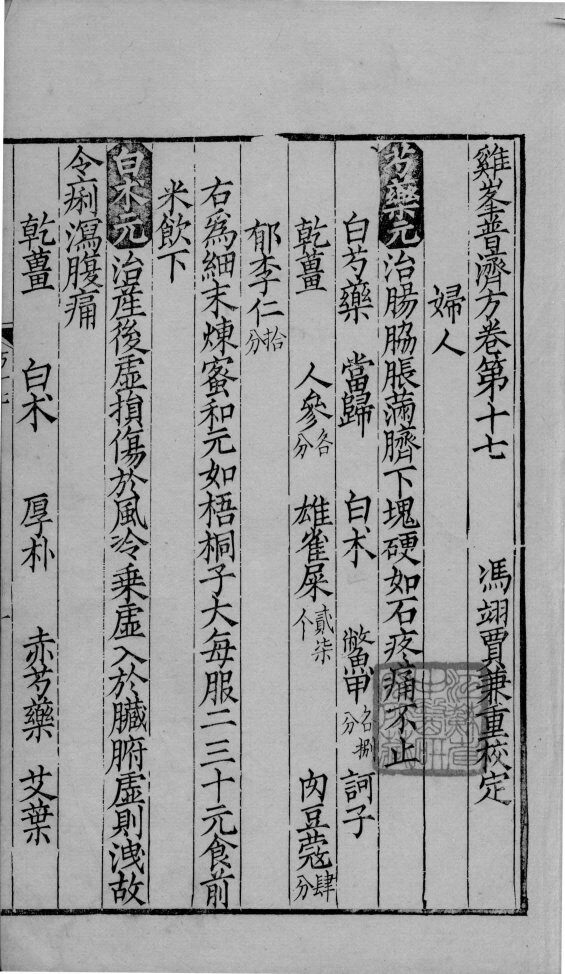 雞峯普濟方卷第十七　馮翊賈兼重校定
婦人
芍藥元 治腸脇脹滿臍下塊硬如石疼痛不止
白芍藥　當歸　白朮　鱉甲各捌分　訶子
乾薑　人參各分　雄雀屎貳柒个　肉豆蔻肆分
郁李仁拾分
右爲細末煉蜜和元如梧桐子大每服二三十元食前
米飲下
白朮元 治産後虛損傷於風冷乘虛入於臟腑虛則洩故
令痢瀉腹痛
乾薑　白朮　厚朴　赤芍藥　艾葉